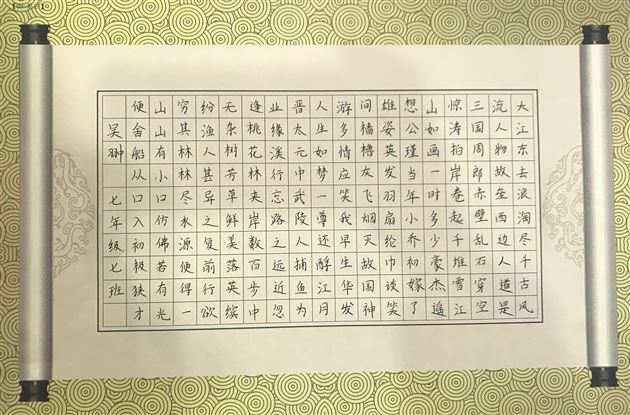 大江东去浪淘尽千古风
流人物故垒西边人道是
三国周郎赤壁乱石穿空
惊涛拍岸卷起千堆雪江
山如画一时多少豪杰遥
想公瑾当年小乔初嫁了
雄姿英发羽扇纶巾谈笑
间樯橹灰飞烟灭故国神
游多情应笑我早生华发
人生如梦一尊还酹江月
晋太元中武陵人捕鱼为
业缘溪行忘路之远近忽
逢桃花林夹岸数百步中
无杂树芳草鲜美落英缤
纷渔人甚异之复前行欲
穷其林林尽水源便得一
山山有小口仿佛若有光
便舍船从口入初极狭才
吴翀 七年级七班